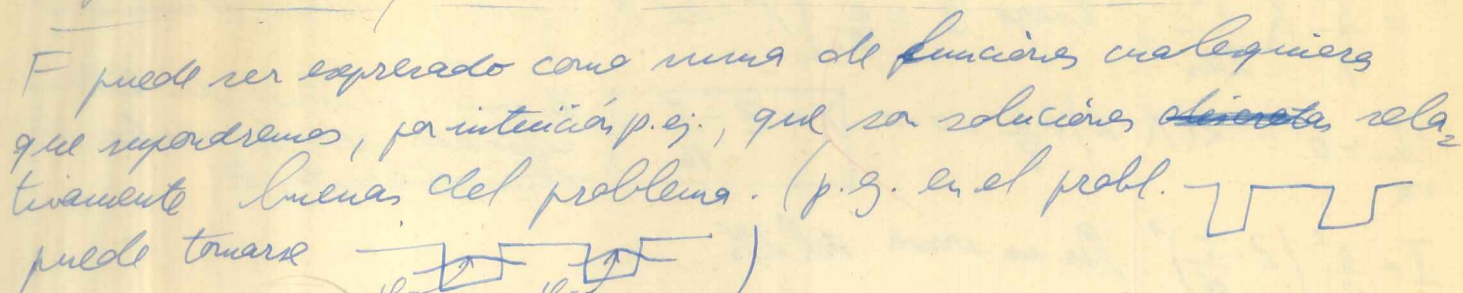 F puede ser expresado como suma de funciones cualequiera
que supondremos, por intuición p.ej., que son soluciones discretas rela=
tivamente buenas del problema. (p.ej. en el probl.
puede tomarse )